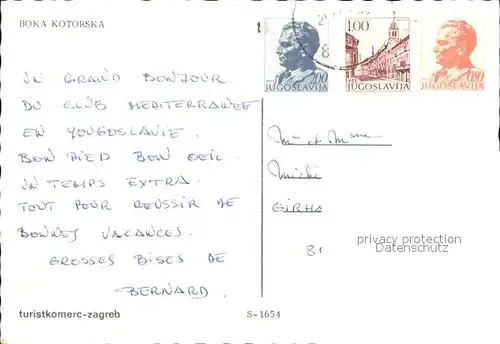 BOKA KOTORSKA
2,00
JUGOSLAVIJA
1.00
JUGOSLAVIJA
0,80
JUGOSLAVIJA
UN GRAND BONJOUR
DU CLUB MEDITERRANEE
EN YOUGOSLAVIE.
BON PIED BON OEIL.
UN TEMPS EXTRA.
TOUT POUR REUSSIR DE
BONNES VACANCES.
GROSSES BISES DE
BERNARD.
Mr et Mme
GIRHA
privacy protection
Datenschutz
turistkomerc-zagreb
S-1654